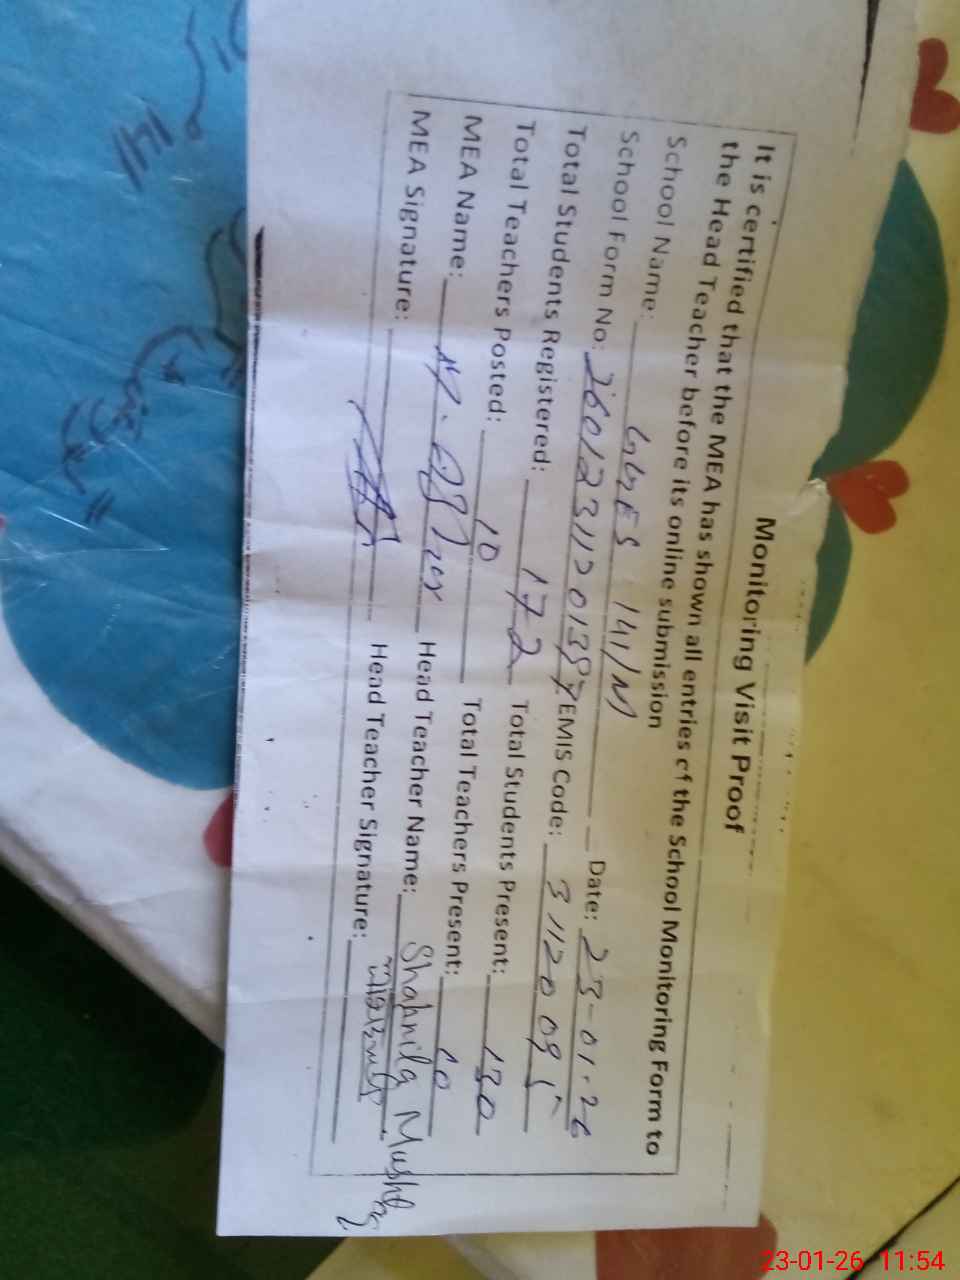 Monitoring Visit Proof
It is certified that the MEA has shown all entries of the School Monitoring Form to
the Head Teacher before its online submission
School Name: GGES 141/M
School Form No: Date: 23-01-26
Total Students Registered: 172 EMIS Code:
Total Teachers Posted: 10 Total Students Present: 130
MEA Name: M. Total Teachers Present: 10
MEA Signature: Head Teacher Name: Shahnila Mushtaq
Head Teacher Signature:
141
23-01-26 11:54